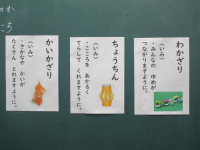 わかざり
〈いみ〉
・みんなの ゆめが
つながりますように。
ちょうちん
〈いみ〉
・こころを あかるく
てらして くれますように。
かいかざり
〈いみ〉
・さかなや かいが
たくさん とれますように。